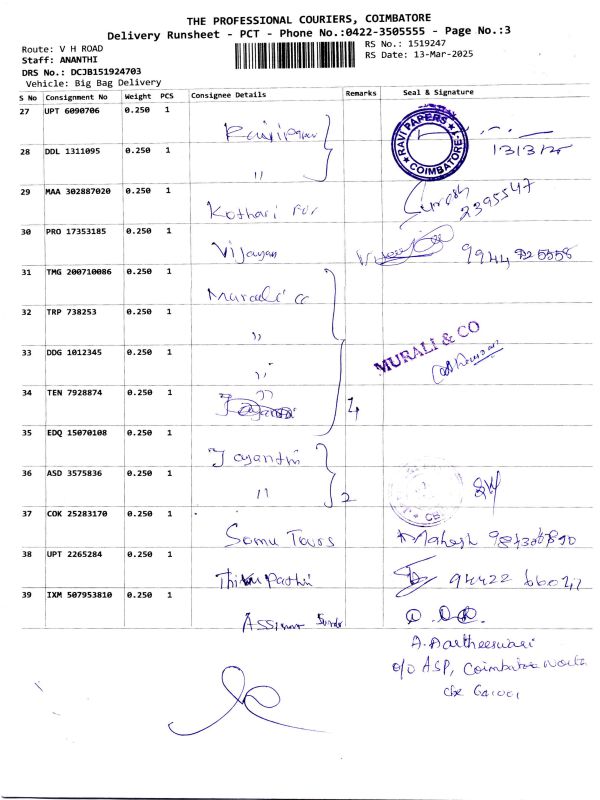 THE PROFESSIONAL COURIERS, COIMBATORE
Delivery Runsheet - PCT - Phone No.:0422-3505555 - Page No.:3
Route: V H ROAD
RS No.: 1519247
Staff: ANANTHI
RS Date: 13-Mar-2025
DRS No.: DCJB151924703
Vehicle: Big Bag Delivery
S No Consignment No Weight PCS Consignee Details Remarks Seal & Signature
27 UPT 6090706 0.250 1
RAVI PAPERS COIMBATORE-1
28 DDL 1311095 0.250 1 〃
29 MAA 302887020 0.250 1 Kothari
Suresh 2395547
30 PRO 17353185 0.250 1 Vijayan
31 TMG 200710086 0.250 1 Murali cc
32 TRP 738253 0.250 1 〃
33 DDG 1012345 0.250 1 〃
MURALI & CO
34 TEN 7928874 0.250 1 〃 4
35 EDQ 15070108 0.250 1 Jayanthi
36 ASD 3575836 0.250 1 〃 2
37 COK 25283170 0.250 1 Somu Tours
Mahesh
38 UPT 2265284 0.250 1
39 IXM 507953810 0.250 1
A. Aartheeswari
o/o ASP, Coimbatore North